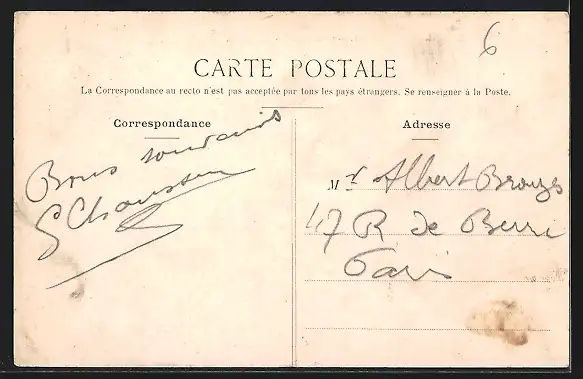 6
CARTE POSTALE
La Correspondance au recto n'est pas acceptée par tous les pays étrangers. Se renseigner à la Poste.
Correspondance
Bons souvenirs
Adresse
Mr Albert
47 R de Berri
Paris